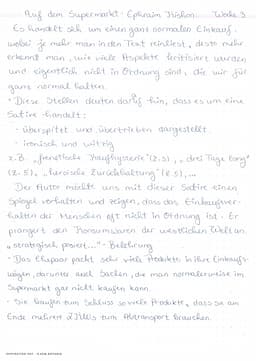 Auf dem Supermarkt - Ephraim Kishon Woche 3
Es handelt sich um einen ganz normalen Einkauf,
wobei je mehr man in den Text reinliest, desto mehr
erkennt man, wie viele Aspekte kritisiert wurden
und eigentlich nicht in Ordnung sind, die wir für
ganz normal halten.
• Diese Stellen deuten darauf hin, dass es um eine
Satire handelt:
- überspitzt und übertrieben dargestellt
- ironisch und witzig
z.B. „frenetische Kaufhysterie" (Z.3), „drei Tage lang"
(Z.5), „heroische Zurückhaltung" (Z.5), ...
Der Autor möchte uns mit dieser Satire einen
Spiegel vorhalten und zeigen, dass das Einkaufsver-
halten der Menschen oft nicht in Ordnung ist. Er
prangert den Konsumwahn der westlichen Welt an.
„strategisch, posiert..." - Belehrung
- Das Ehepaar packt sehr viele Produkte in ihre Einkaufs-
wägen, darunter auch Sachen, die man normalerweise im
Supermarkt gar nicht kaufen kann.
- Sie kaufen zum Schluss so viele Produkte, dass sie am
Ende mehrere LKWs zum Abtransport brauchen.